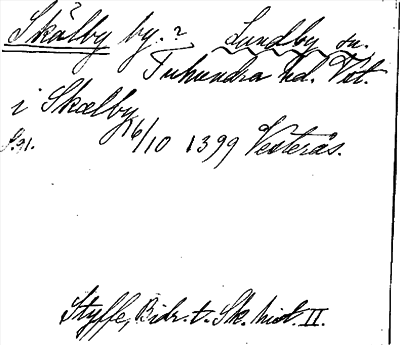 Skälby by. ? Lundby sn.
Tuhundra hd. Vstm.
i Skælby
S. 31. 16/10 1399 Vesterås.
Styffe, Bidr. t. Sk. hist. II.